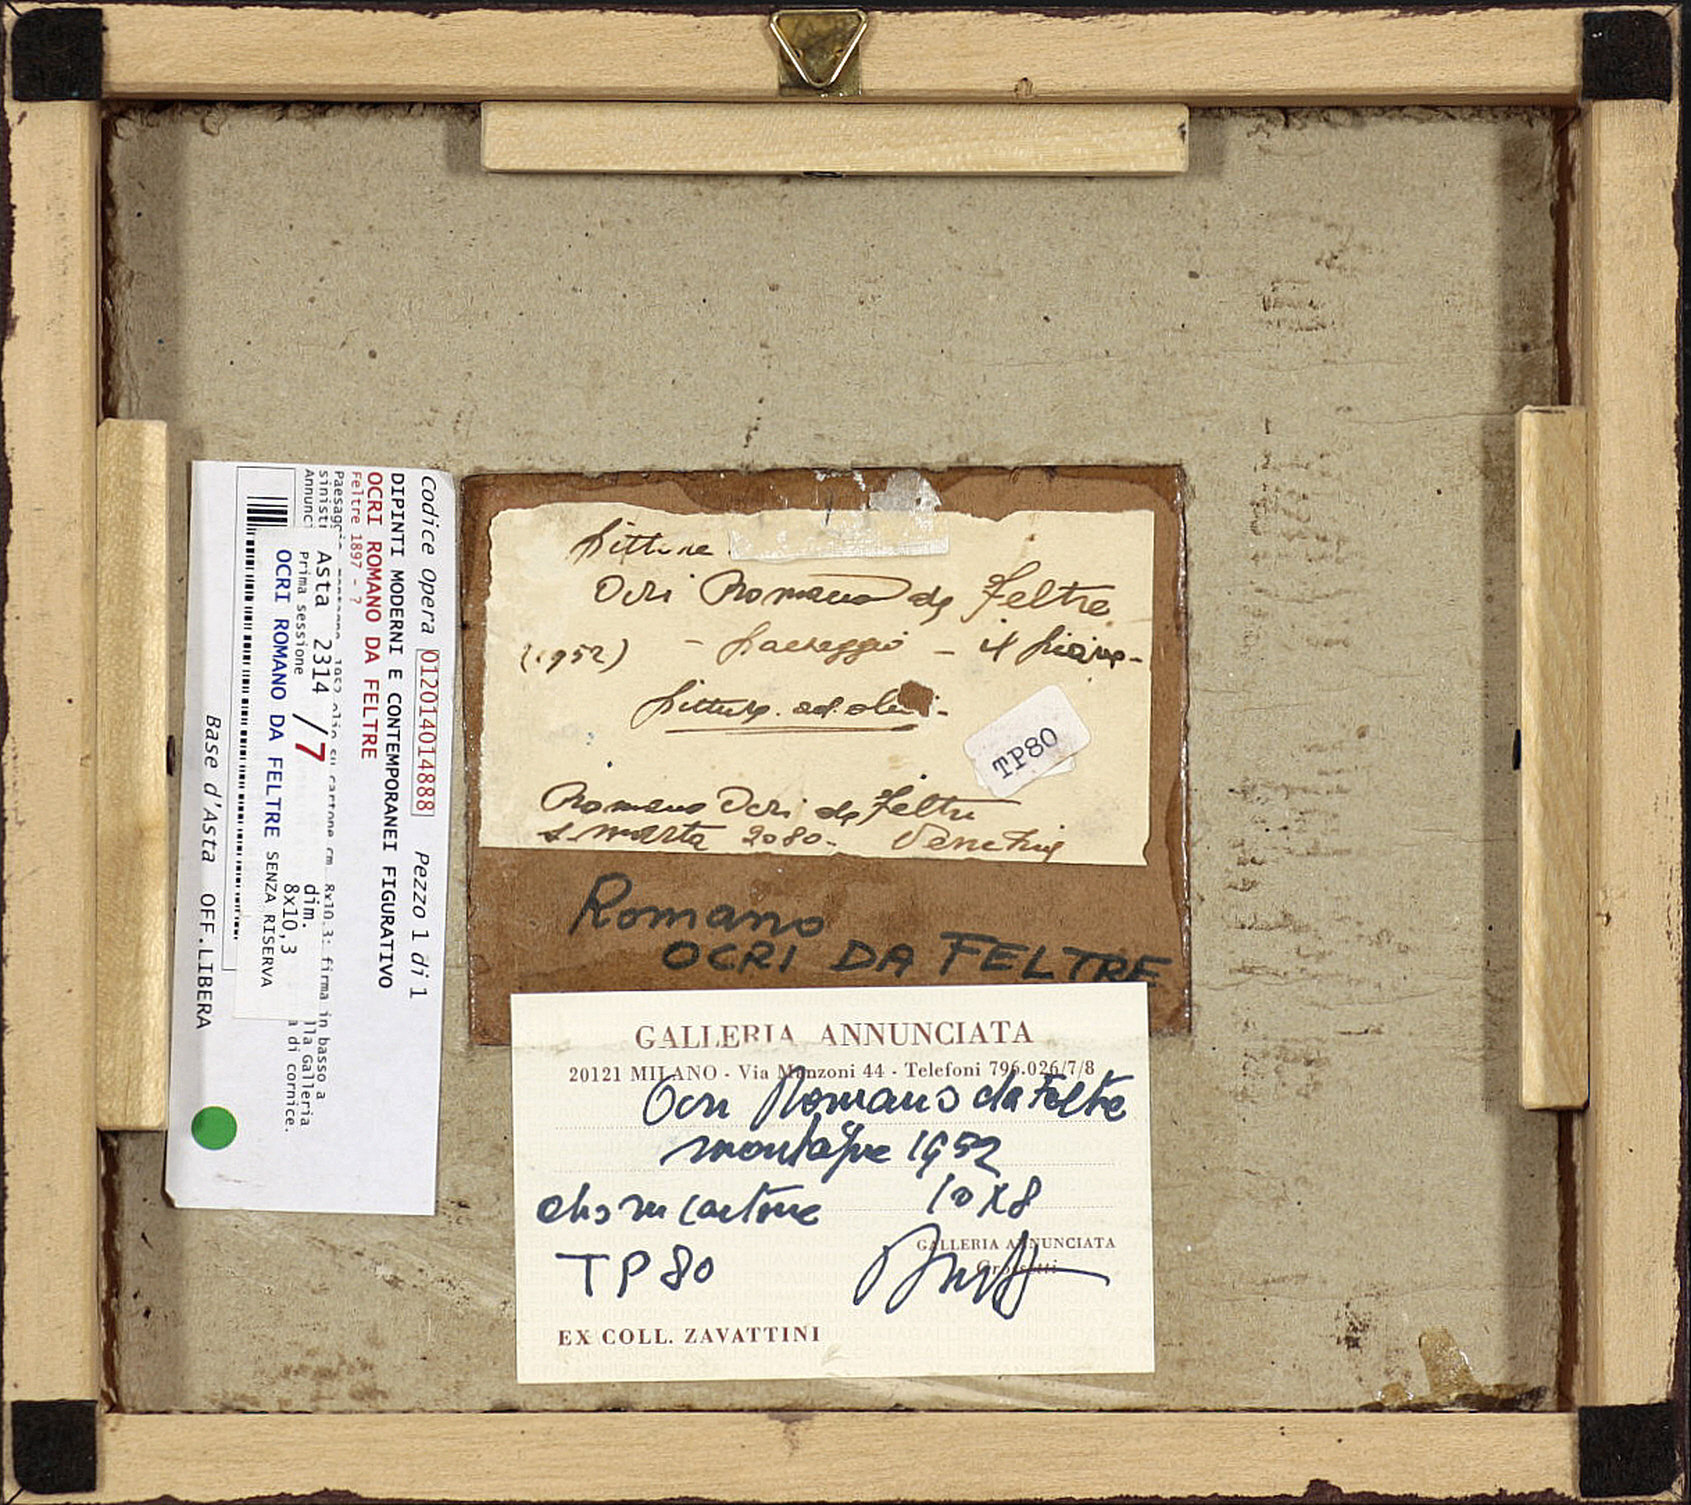 Pittore
Ocri Romano da Feltre
(1952) - paesaggio - il Piave -
pittura ad olio -
TP80
Romano Ocri da Feltre
S. Marta 2080 - Venezia
Romano
OCRI DA FELTRE
GALLERIA ANNUNCIATA
20121 MILANO - Via Manzoni 44 - Telefoni 796.026/7/8
Ocri Romano da Feltre
montagne 1952
olio su cartone 10x8
GALLERIA ANNUNCIATA
Grossetti
TP80
EX COLL. ZAVATTINI
Codice Opera 012014014888 Pezzo 1 di 1
DIPINTI MODERNI E CONTEMPORANEI FIGURATIVO
OCRI ROMANO DA FELTRE
Feltre 1897 - ?
1952 olio su cartone cm 8x10,3; firma in basso a
sinist
Annunc
lla Galleria
a di cornice.
Asta 2314 /7
Prima sessione
dim.
8x10,3
OCRI ROMANO DA FELTRE SENZA RISERVA
Base d'Asta OFF.LIBERA